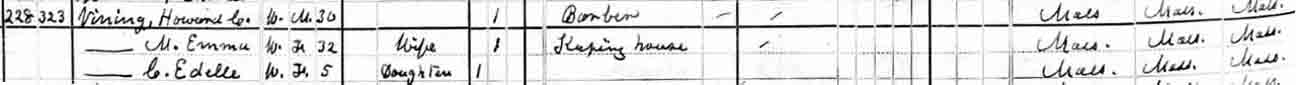 228 323 Vining, Howard C. W. M. 30 1 Barber Mass Mass. Mass.
M. Emma W. F. 32 Wife 1 Keeping house Mass. Mass. Mass.
C. Edelle W. F. 5 Daughter 1 Mass. Mass. Mass.